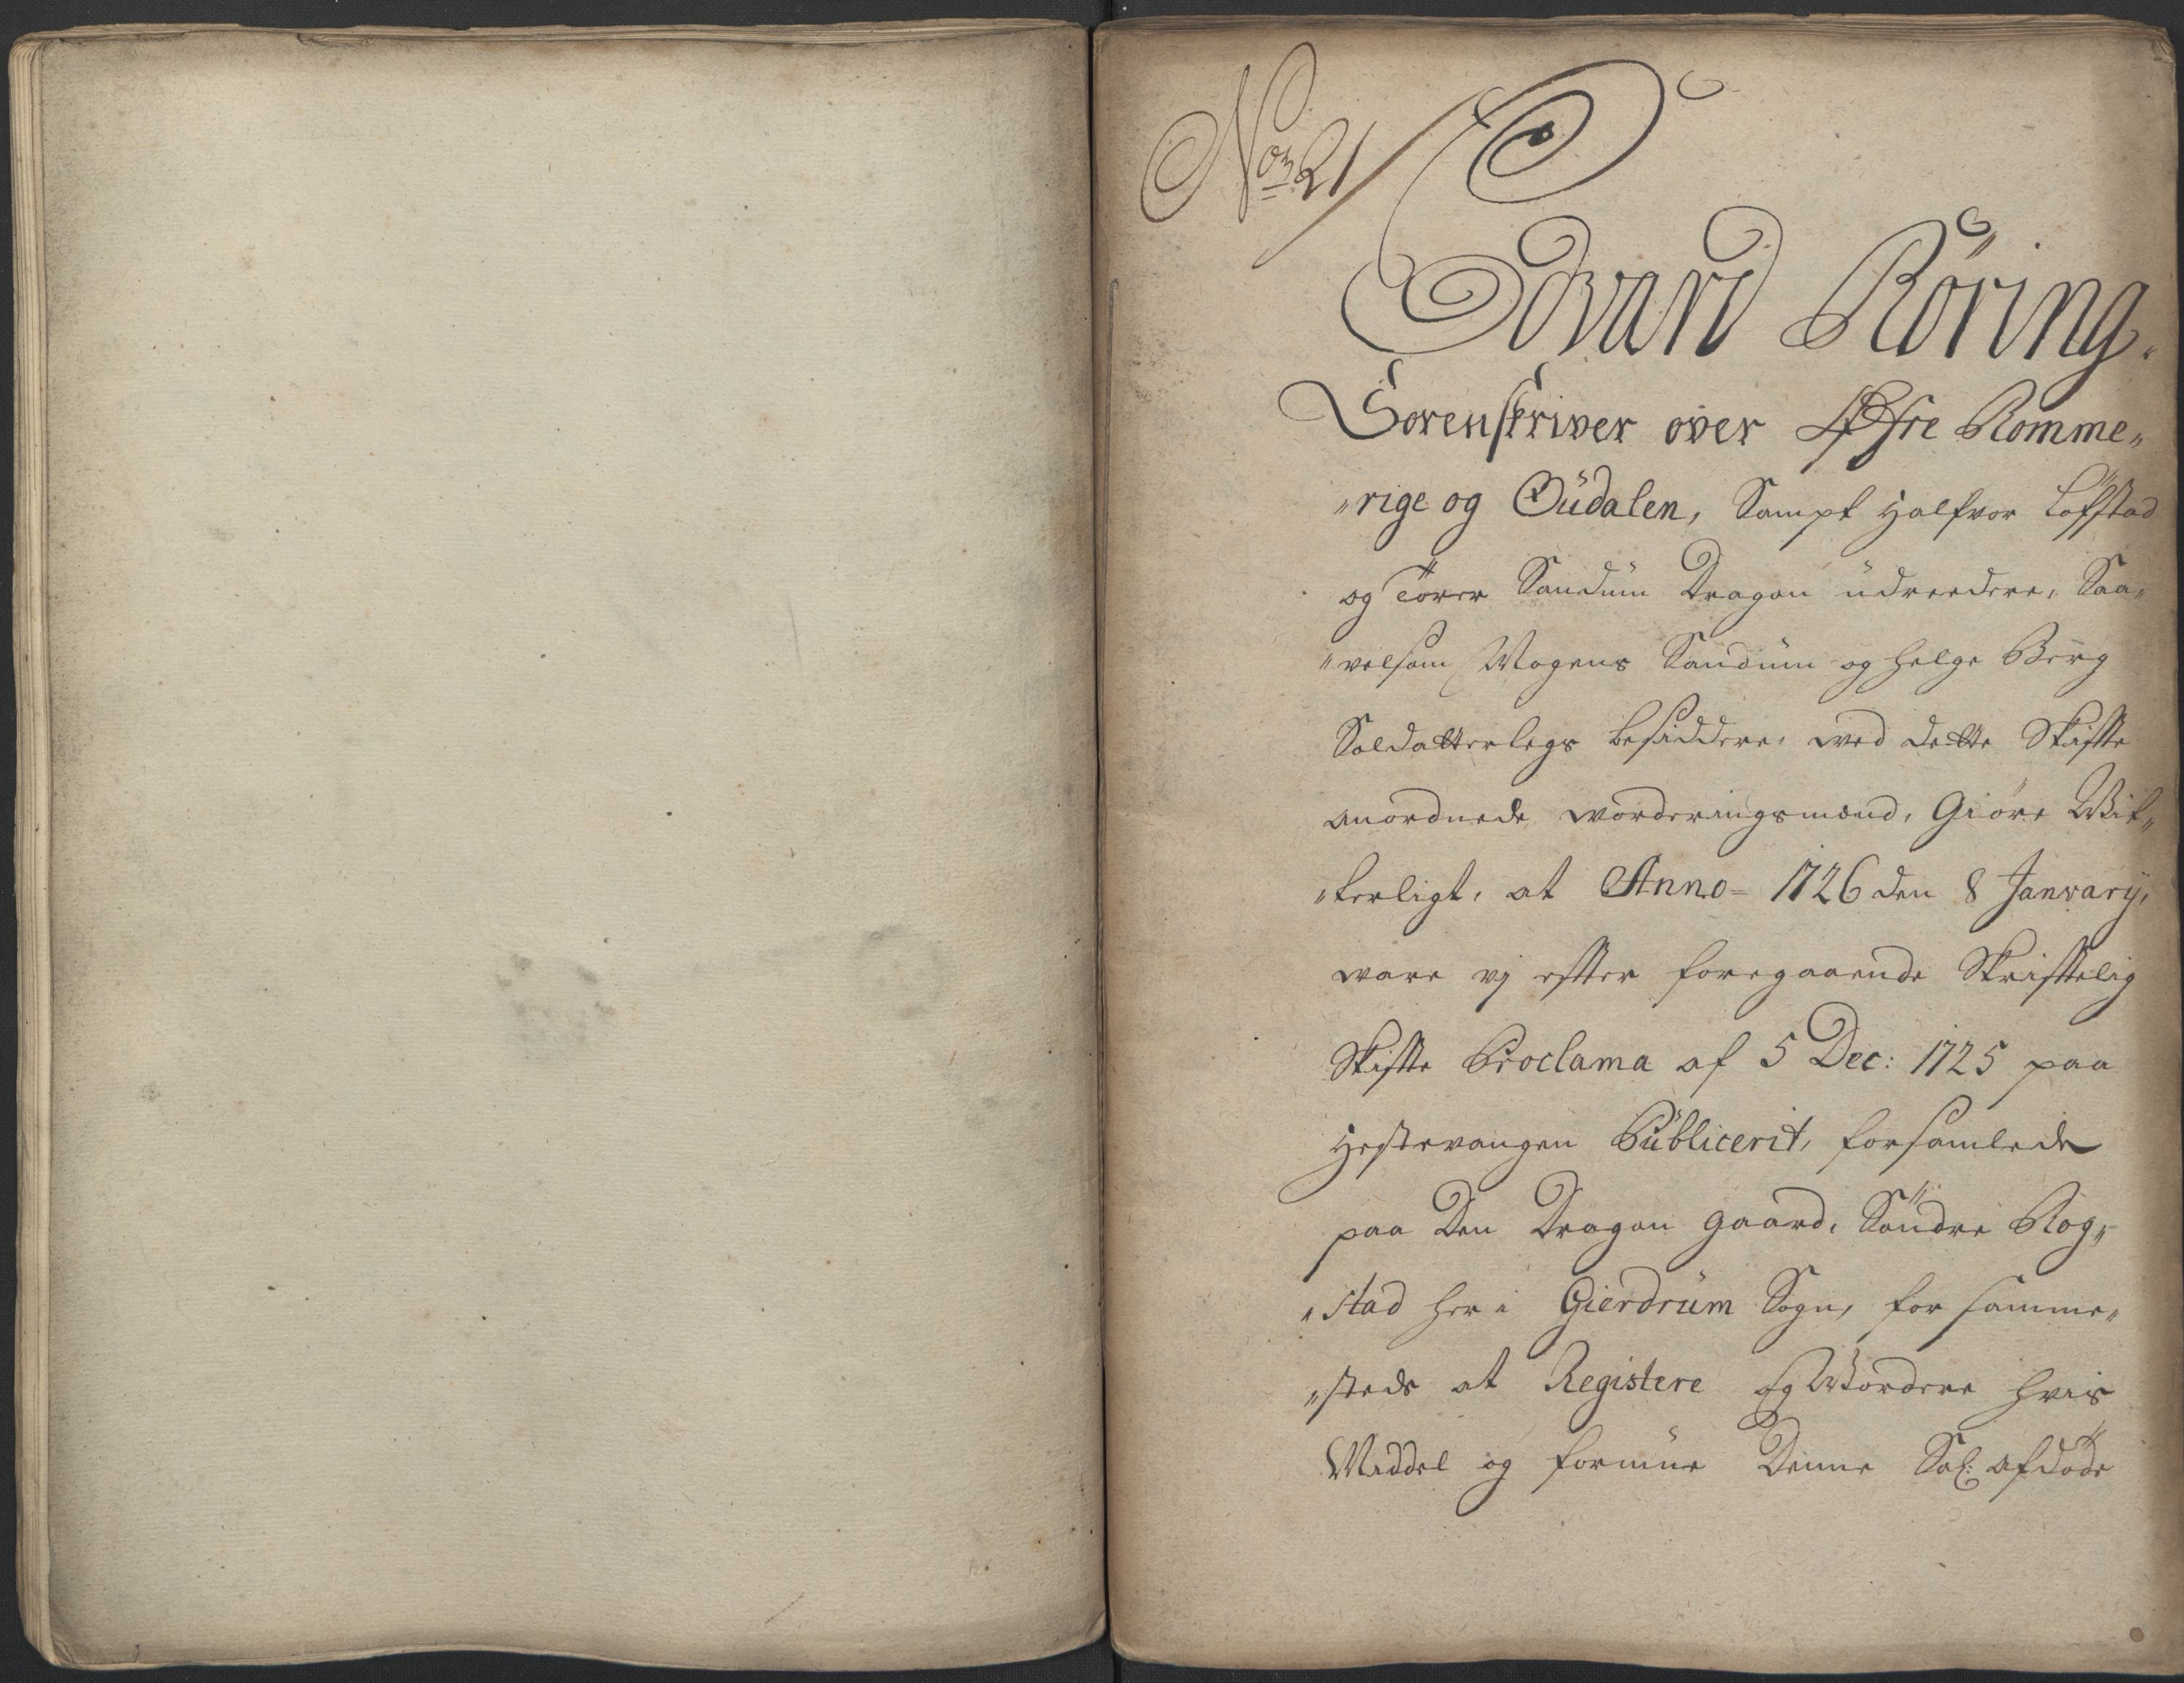 No: 21
Edvard Röring.
Sorenskriver over Øfre Romme„
„rige og Oüdalen, Sampt Halfvor Löfstad
og Törer Sandüm Dragon üdreedere, Saa„
„velsom Mogens Sandüm og Helge Berg
Soldatterlegs besiddere, ved dette Skiffte
anordnede vorderingsmænd, Giøre Wit„
„terligt, at Anno 1726 den 8 Janvarij,
vare vj effter foregaaende Skrifftelig
Skiffte Proclama af 5 Dec: 1725 paa
Hestevangen Püblicerit, forsamlede
paa Den Dragon gaard, Söndre Rog„
„stad her i Gierdrüm Sogn, for samme„
„steds at Registere og Wordere hvis
Middel og formüe Denne Sal: afdöde